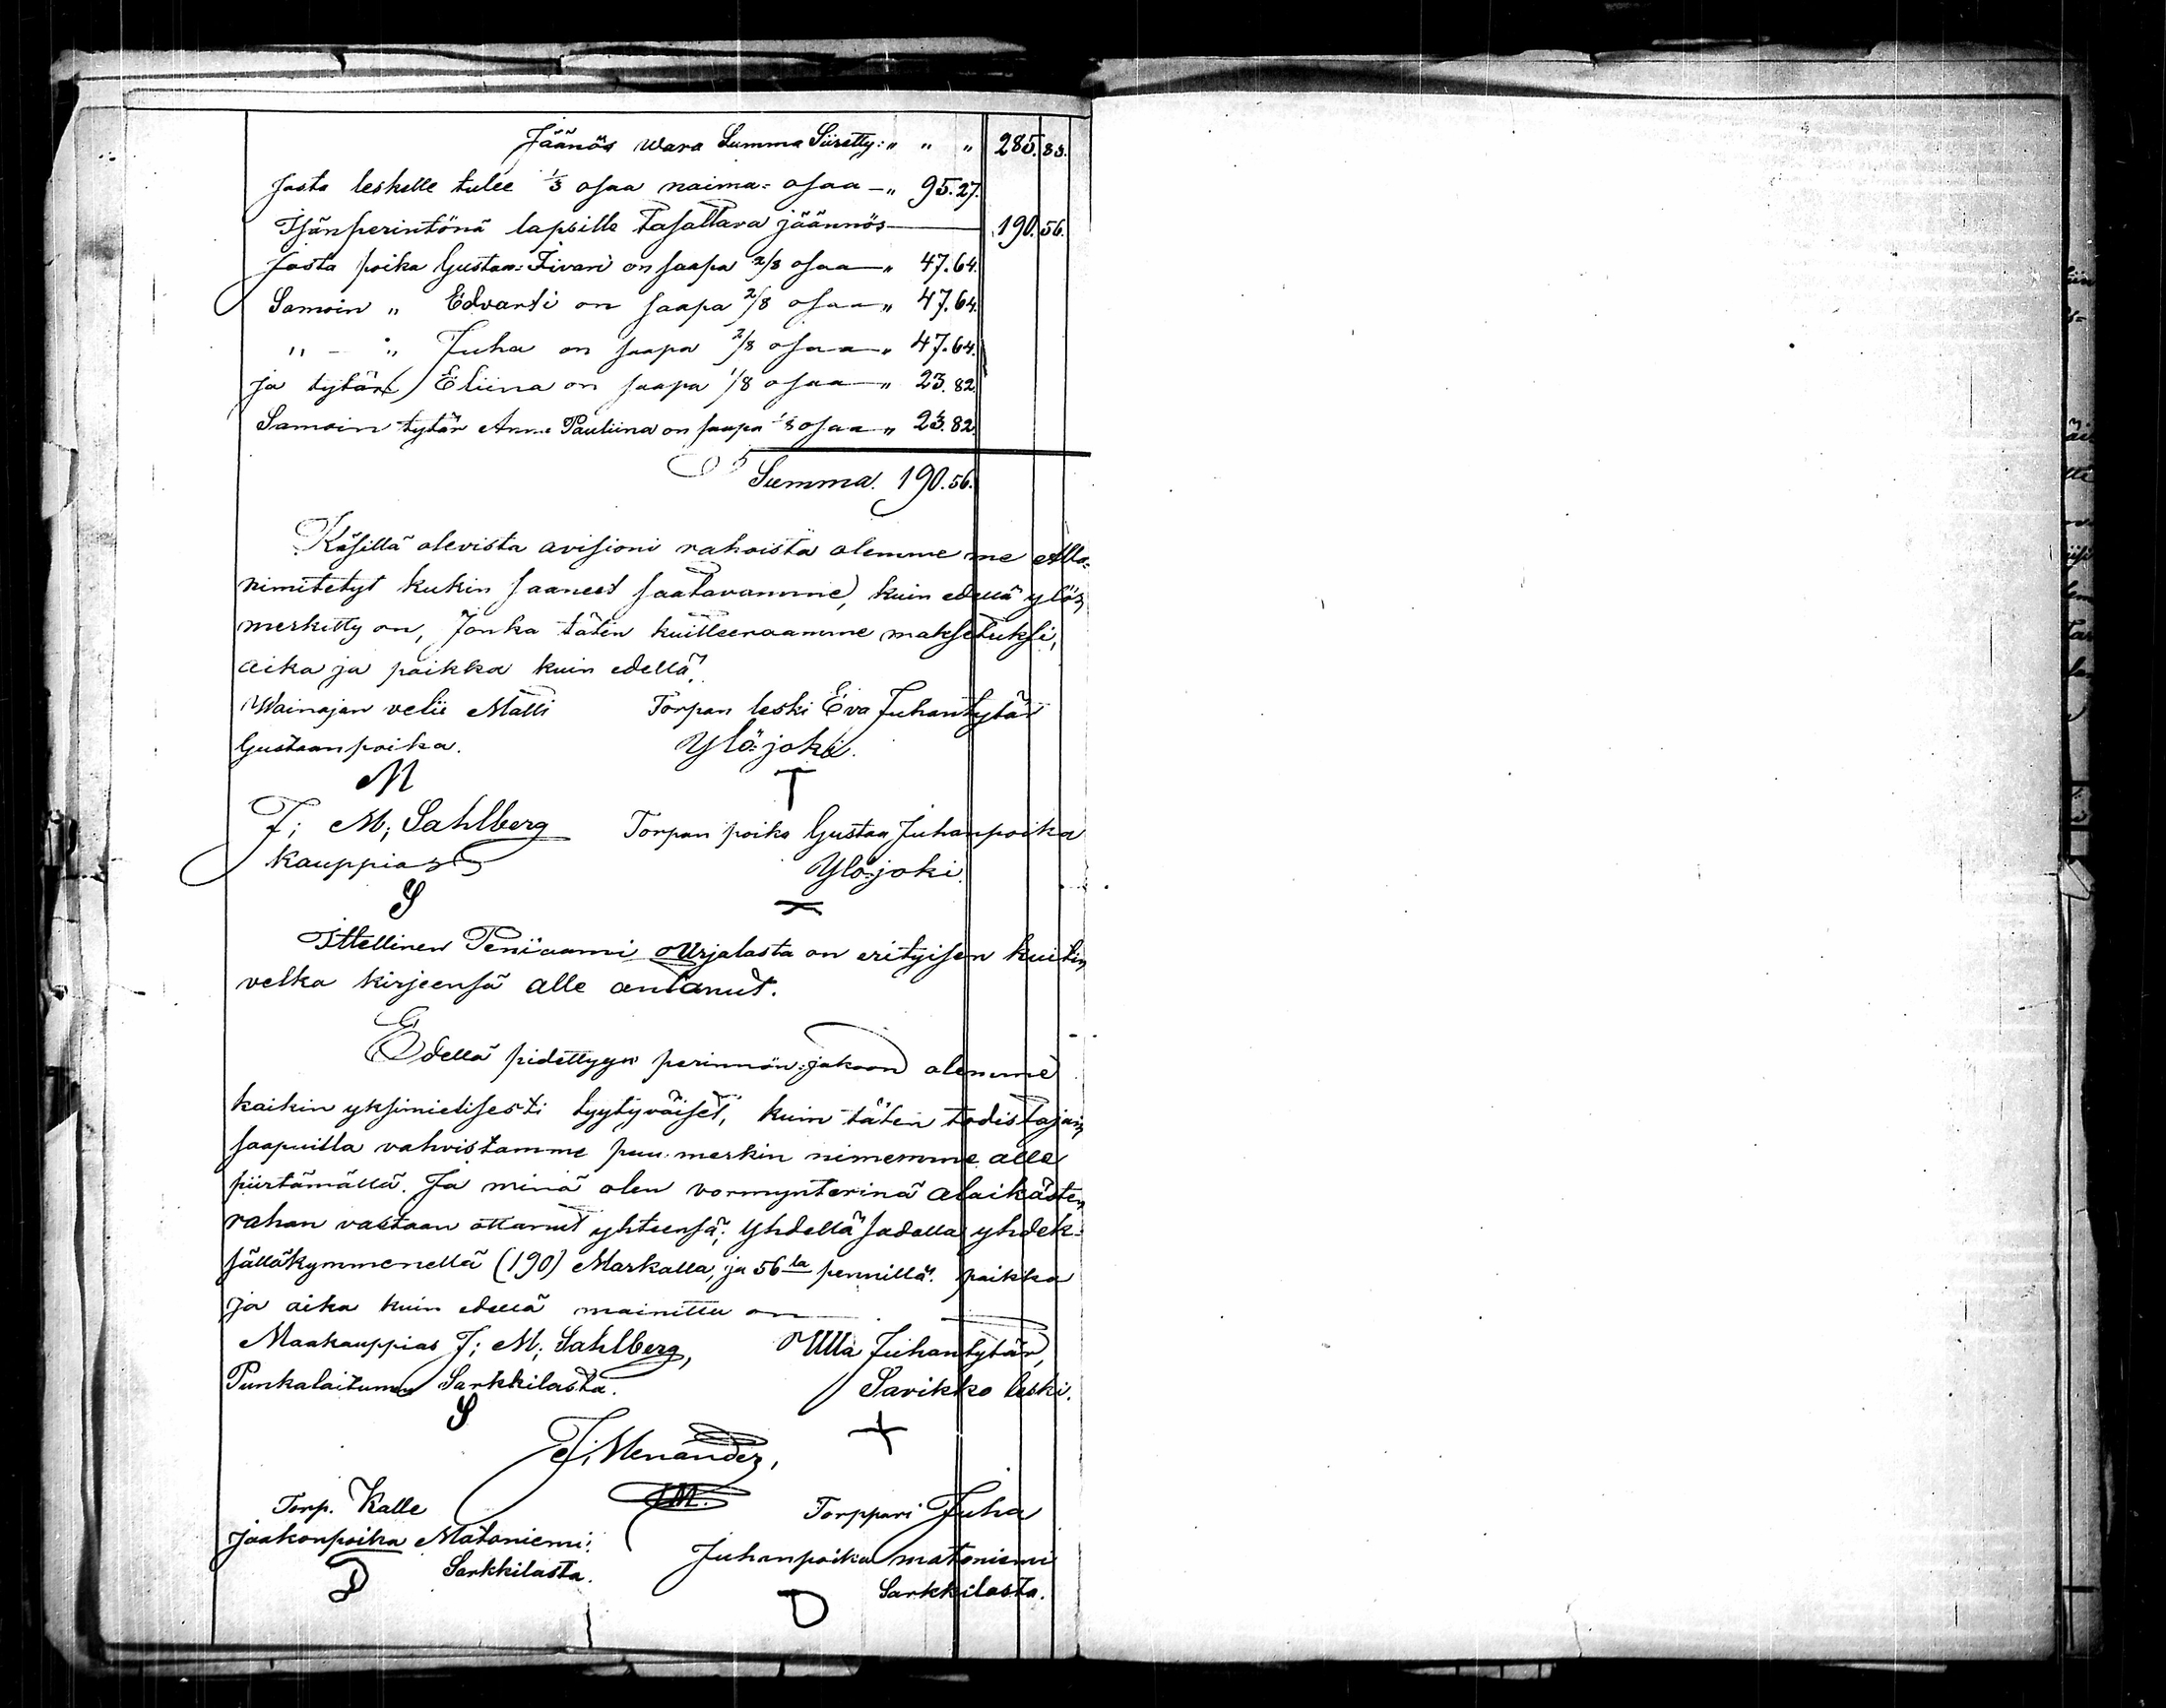 Jäänös wara Summa Siiretty: " " " 285. 83.
Josta leskelle tulee 1/3 osaa naima= osaa — " 95. 27.
Isänperintönä lapsille tasattava jäännös — 190. 56.
Josta poika Gustaa: Fivari on saapa 2/8 osaa — " 47. 64.
Samoin " Edvarti on saapa 2/8 osaa " 47. 64.
" - " Juha on saapa 2/8 osaa " 47. 64.
ja tytär Eliina on saapa 1/8 osaa — " 23. 82.
Samoin tytär Anna Pauliina on saapa 1/8 osaa " 23. 82.
Summa. 190. 56.
Käsillä olevista avisioni rahoista olemme me Alla=
nimitetyt kukin saaneet saatavamme, kuin edellä ylös
merkitty on, Jonka täten kuitteeraamme maksetuksi,
aika ja paikka kuin edellä.
Wainajan velii Matti Torpan leski Eva Juhantytär
Gustaanpoika. Ylö=joki.
M
J; M; Sahlberg Torpan poika Gustaa Juhanpoika
Kauppias Ylö=joki.
S
Ittellinen Peniaami Urjalasta on erityisen kuitin
velka kirjeensä alle antanut.
Edellä pidettyyn perinnön=jakoon olemme
kaikin yksimielisesti tyytyväiset, kuin täten todistajain
saapuilla vahvistamme puu merkin nimemme alle
piirtämällä. Ja minä olen vormynterinä alaikäisten
rahan vastaan ottanut yhteensä; Yhdellä sadalla yhdek=
sälläkymmenellä (190) Markalla, ja 56 la pennillä. paikka
ja aika kuin edellä mainittu on
Maakauppias J; M; Sahlberg, Ulla Juhantytär,
Punkalaitumen Sarkkilasta. Savikko leski.
S
J; Menander,
JM.
Torp. Kalle Torppari Juha
Jaakonpoika Matoniemi: Juhanpoika matoniemi
Sarkkilasta. Sarkkilasta.